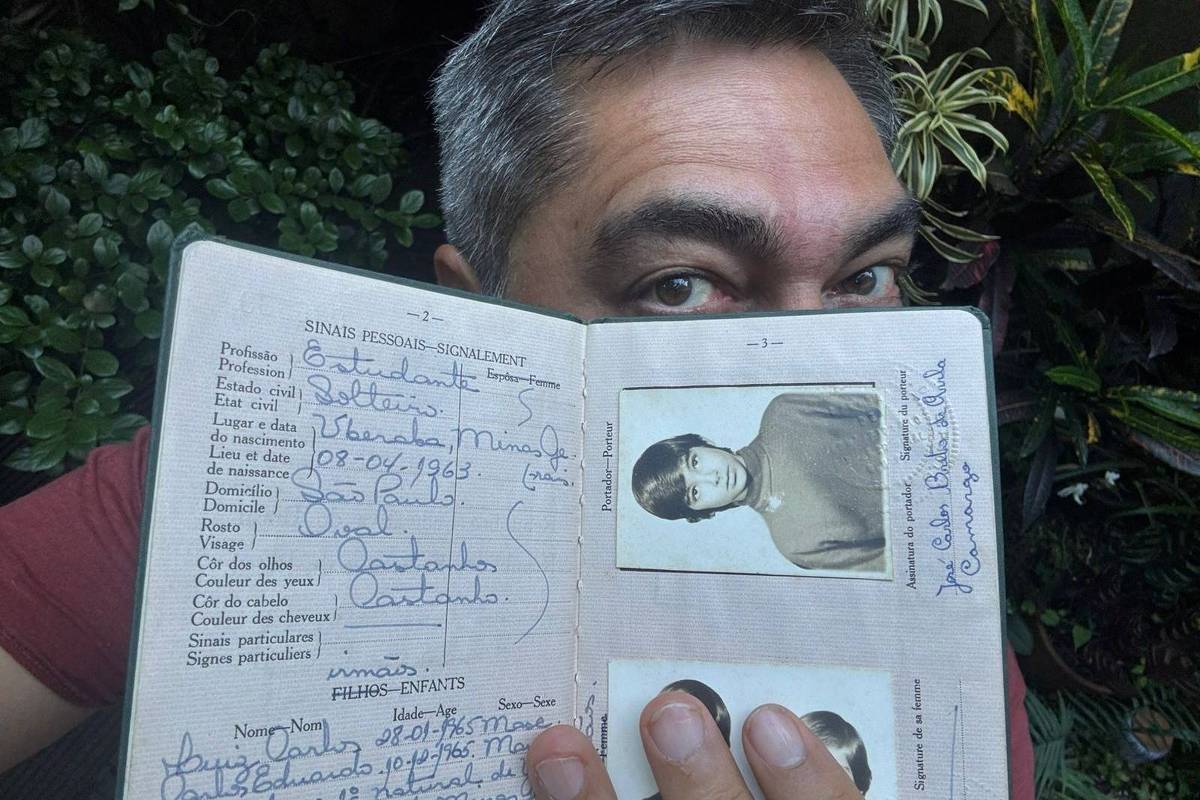 —2—
SINAIS PESSOAIS—SIGNALEMENT
Espôsa—Femme
Profissão
Profession
Estudante
Estado civil
Etat civil
Solteiro.
Lugar e data
do nascimento
Lieu et date
de naissance
Uberaba, Minas Ge-
rais.
08-04-1963.
Domicílio
Domicile
São Paulo.
Rosto
Visage
Oval.
Côr dos olhos
Couleur des yeux
Castanhos
Côr do cabelo
Couleur des cheveux
Castanho.
Sinais particulares
Signes particuliers
irmãos.
FILHOS—ENFANTS
Nome—Nom
Idade—Age
Sexo—Sexe
Luiz Carlos 28-01-1965 Masc.
Carlos Eduardo. 10-12-1965.
natural de
—3—
Portador—Porteur
Assinatura do portador. Signature du porteur
José Carlos Brito de Ávila
Camargo
Femme
Signature de sa femme